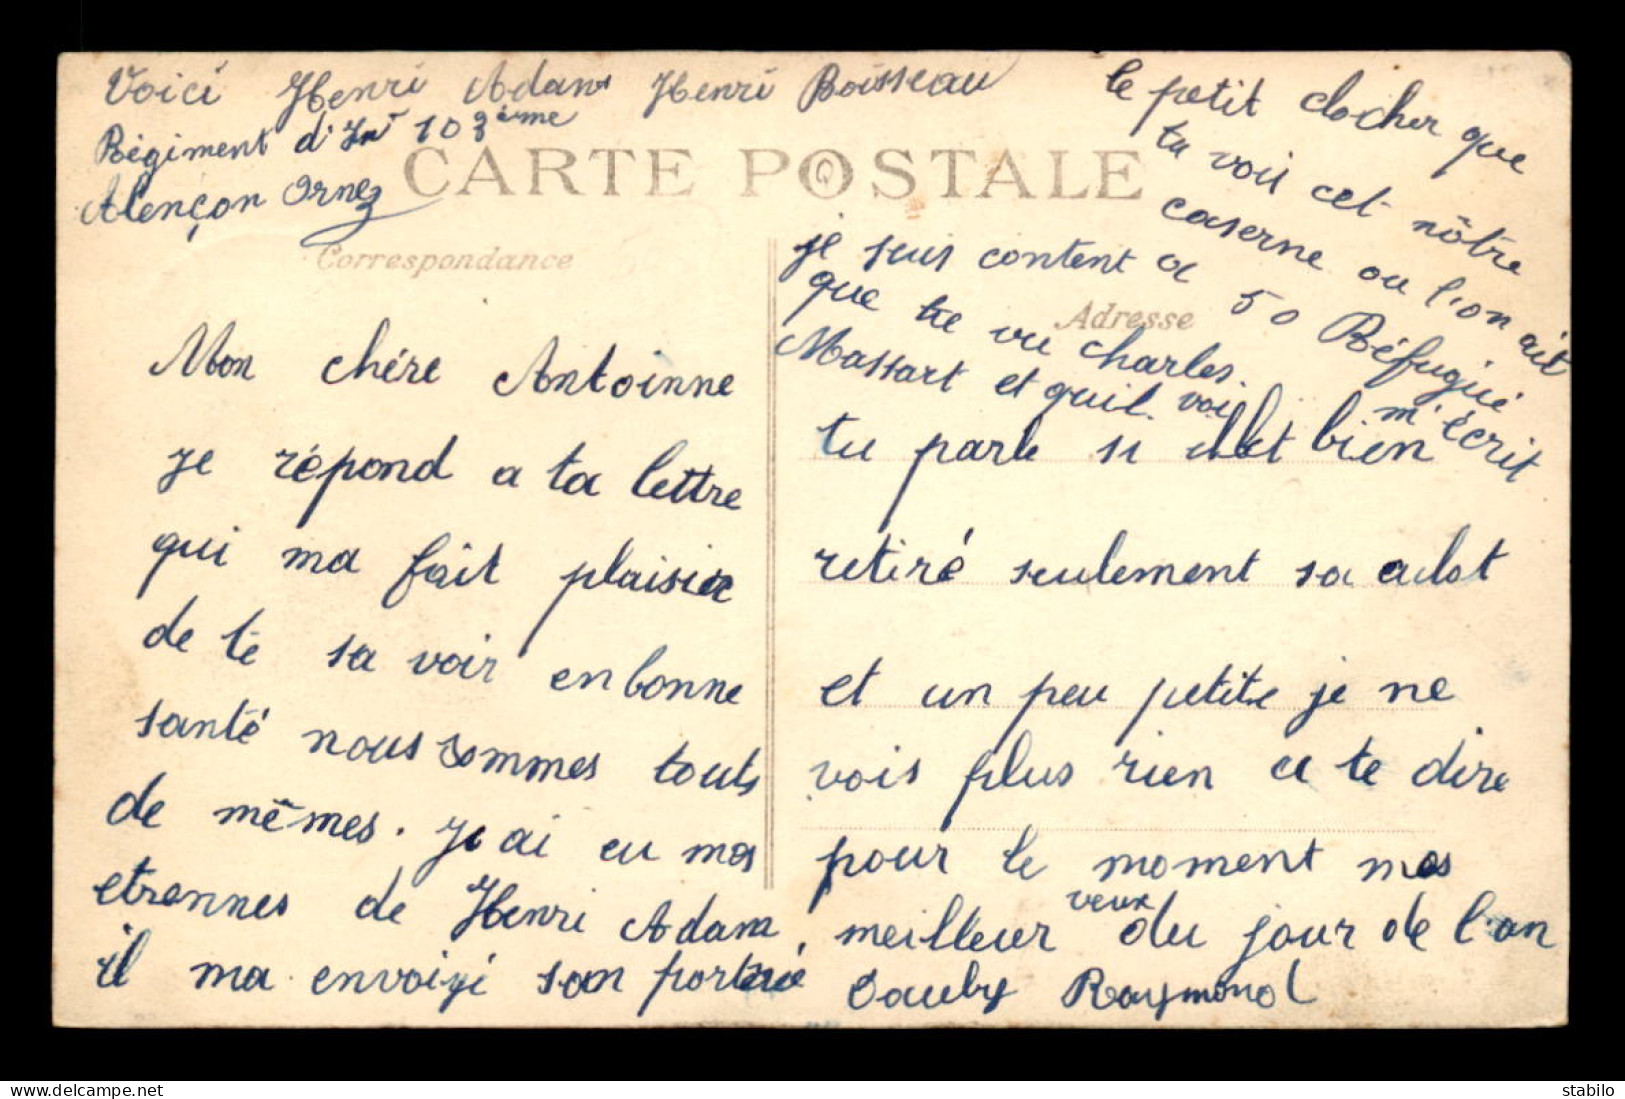 Voici Henri Adam Henri Boisseau
Régiment d'Inf 103ème
Alençon Orne
CARTE POSTALE
Correspondance
Adresse
Mon chére Antoinne
je répond a ta lettre
qui ma fait plaisir
de te sa voir en bonne
santé nous sommes touts
de mêmes. Je ai eu mes
etrennes de Henri Adam,
il ma envoiyé son portrié
le petit clocher que
tu voit cet nôtre
caserne ou l'on ait
50 Réfugié
m'écrit
je suis content a
que tu vu charles.
Massart et quil. voi
tu parle si ill et bien
retiré seulement sa adot
et un peu petite je ne
vois plus rien a te dire
pour le moment mes
meilleur veux du jour de l'an
Oauby Raymond
stabilo